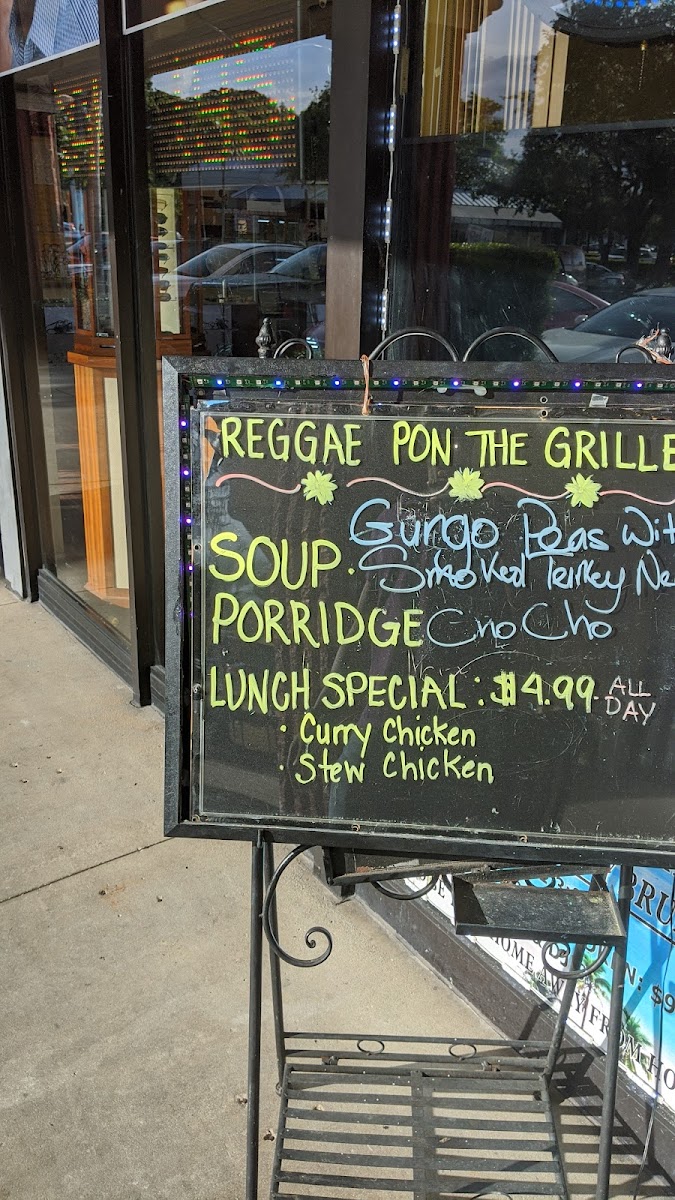 REGGAE PON THE GRILLE
Gungo Peas Wit
SOUP. Smoked Turkey Ne
PORRIDGE Cho Cho
LUNCH SPECIAL: $4.99 ALL DAY
· Curry Chicken
· Stew Chicken
BRU
N: $9
HOME AWAY FROM HO